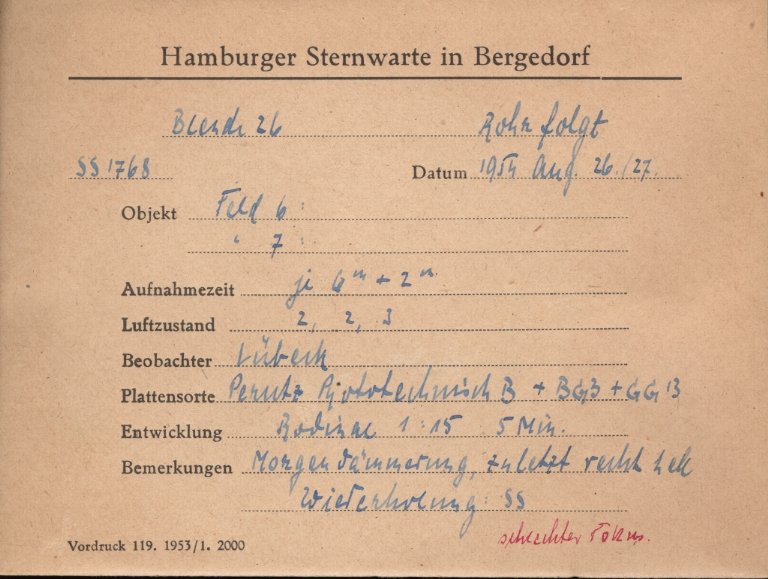 Hamburger Sternwarte in Bergedorf
Blende 26 Rohr folgt
SS 1768 Datum 1954 Aug. 26./27.
Objekt Feld 6:
" 7:
Aufnahmezeit je 6ᵐ + 2ᵐ
Luftzustand 2, 2, 3
Beobachter Lübeck
Plattensorte Perutz Phototechnisch B + BG3 + GG 13
Entwicklung Rodinal 1:15 5 Min.
Bemerkungen Morgendämmerung, zuletzt recht hell
Wiederholung: SS
schlechter Fokus.
Vordruck 119. 1953/1. 2000